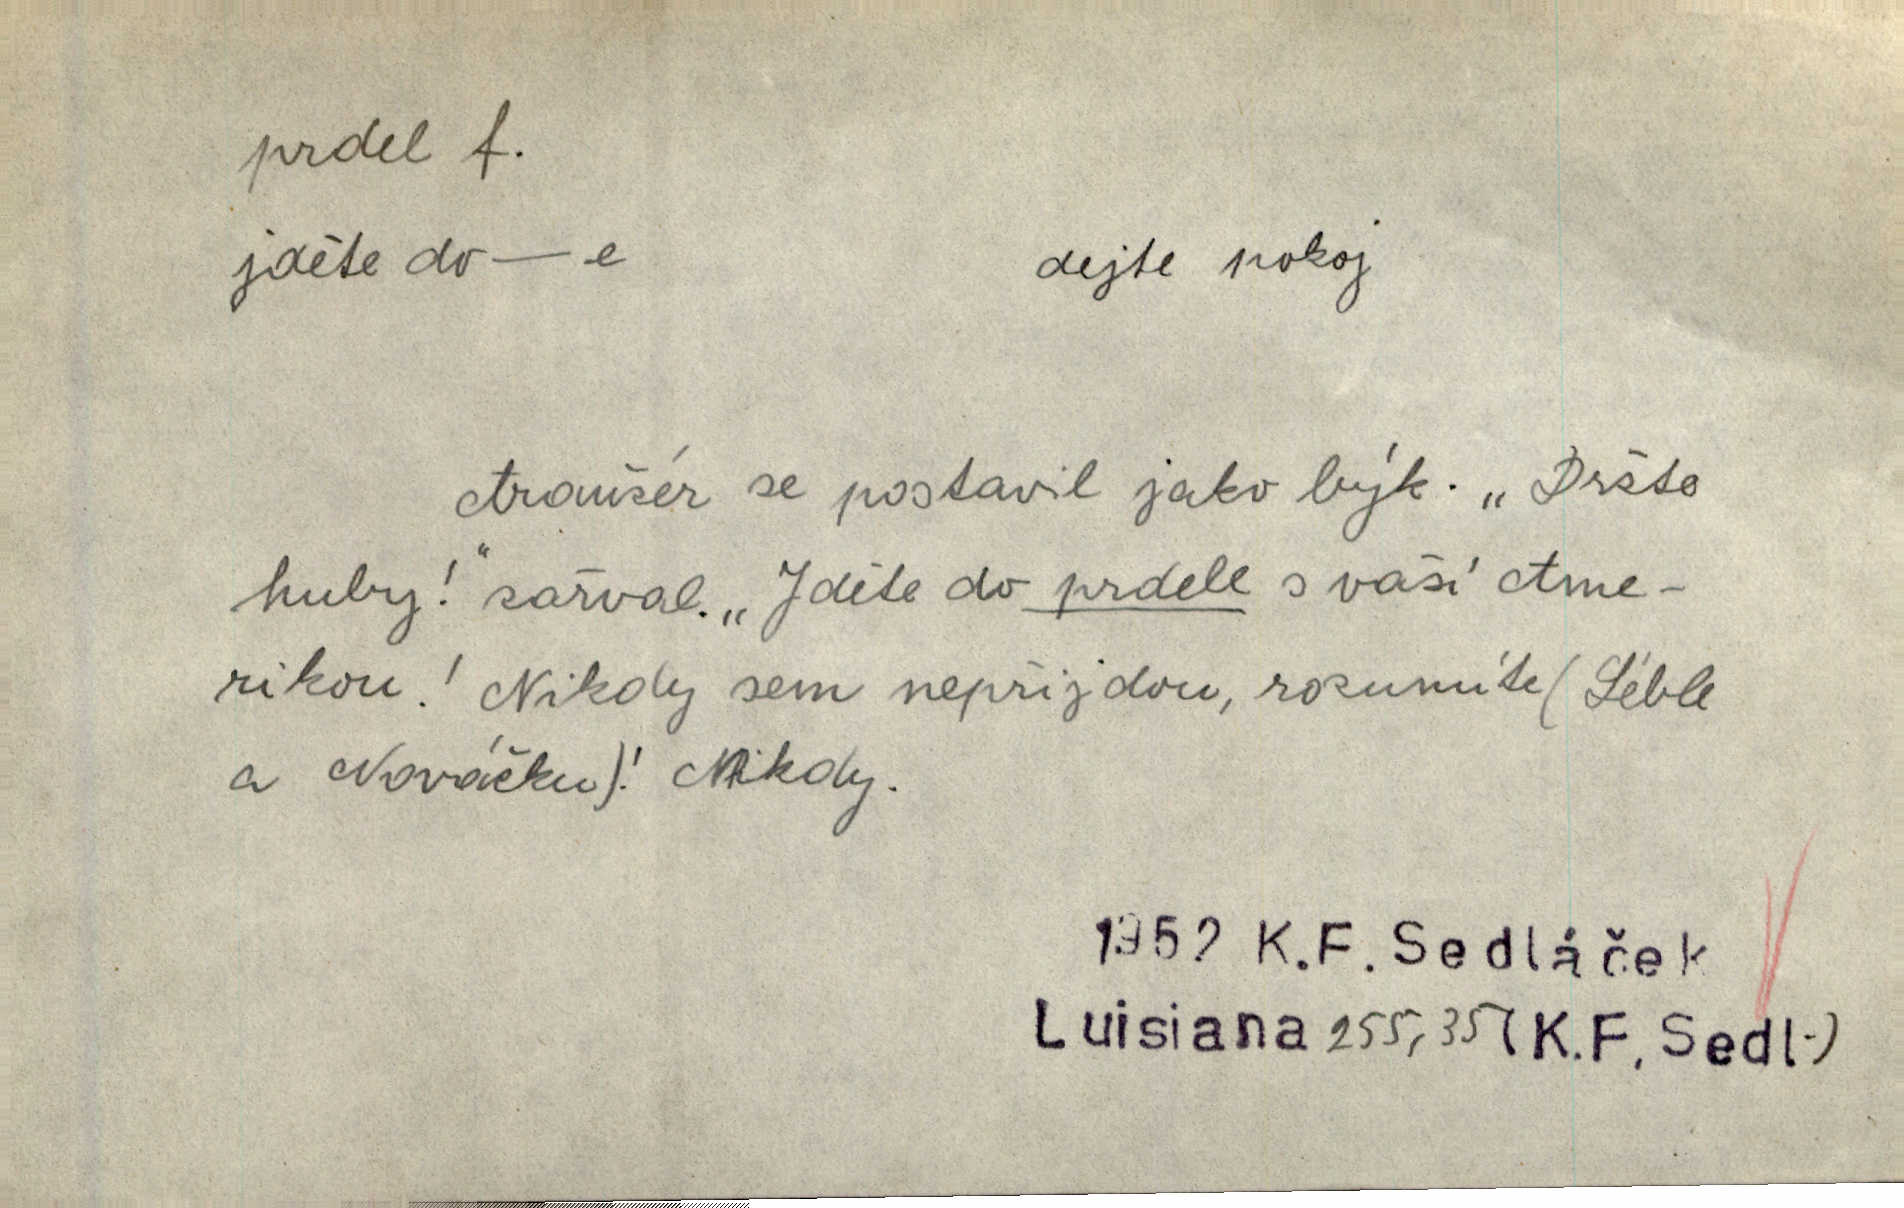 prdel f.
jděte do — e dejte pokoj
Aranšér se postavil jako býk. „Držte
huby!“ zařval. „Jděte do prdele s vaší Ame-
rikou! Nikdy sem nepřijdou, rozumíte (Léble
a Nováčku)! Nikdy.
1952 K.F. Sedláček
Luisiana 255,35 (K.F. Sedl.)